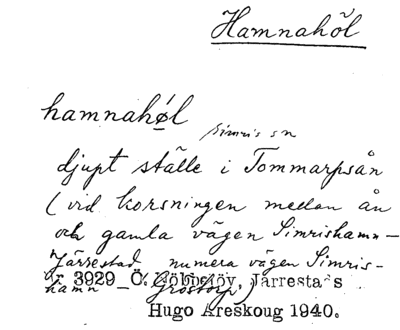 Hamnahöl
hamnahøl
Simris sn
djupt ställe i Tommarpsån
(vid korsningen medan ån
och gamla vägen Simrishamn–
Järrestad, numera vägen Simris-
hamn Grostorp)
3929 Ö. Järrestads
Hugo Areskoug 1940.